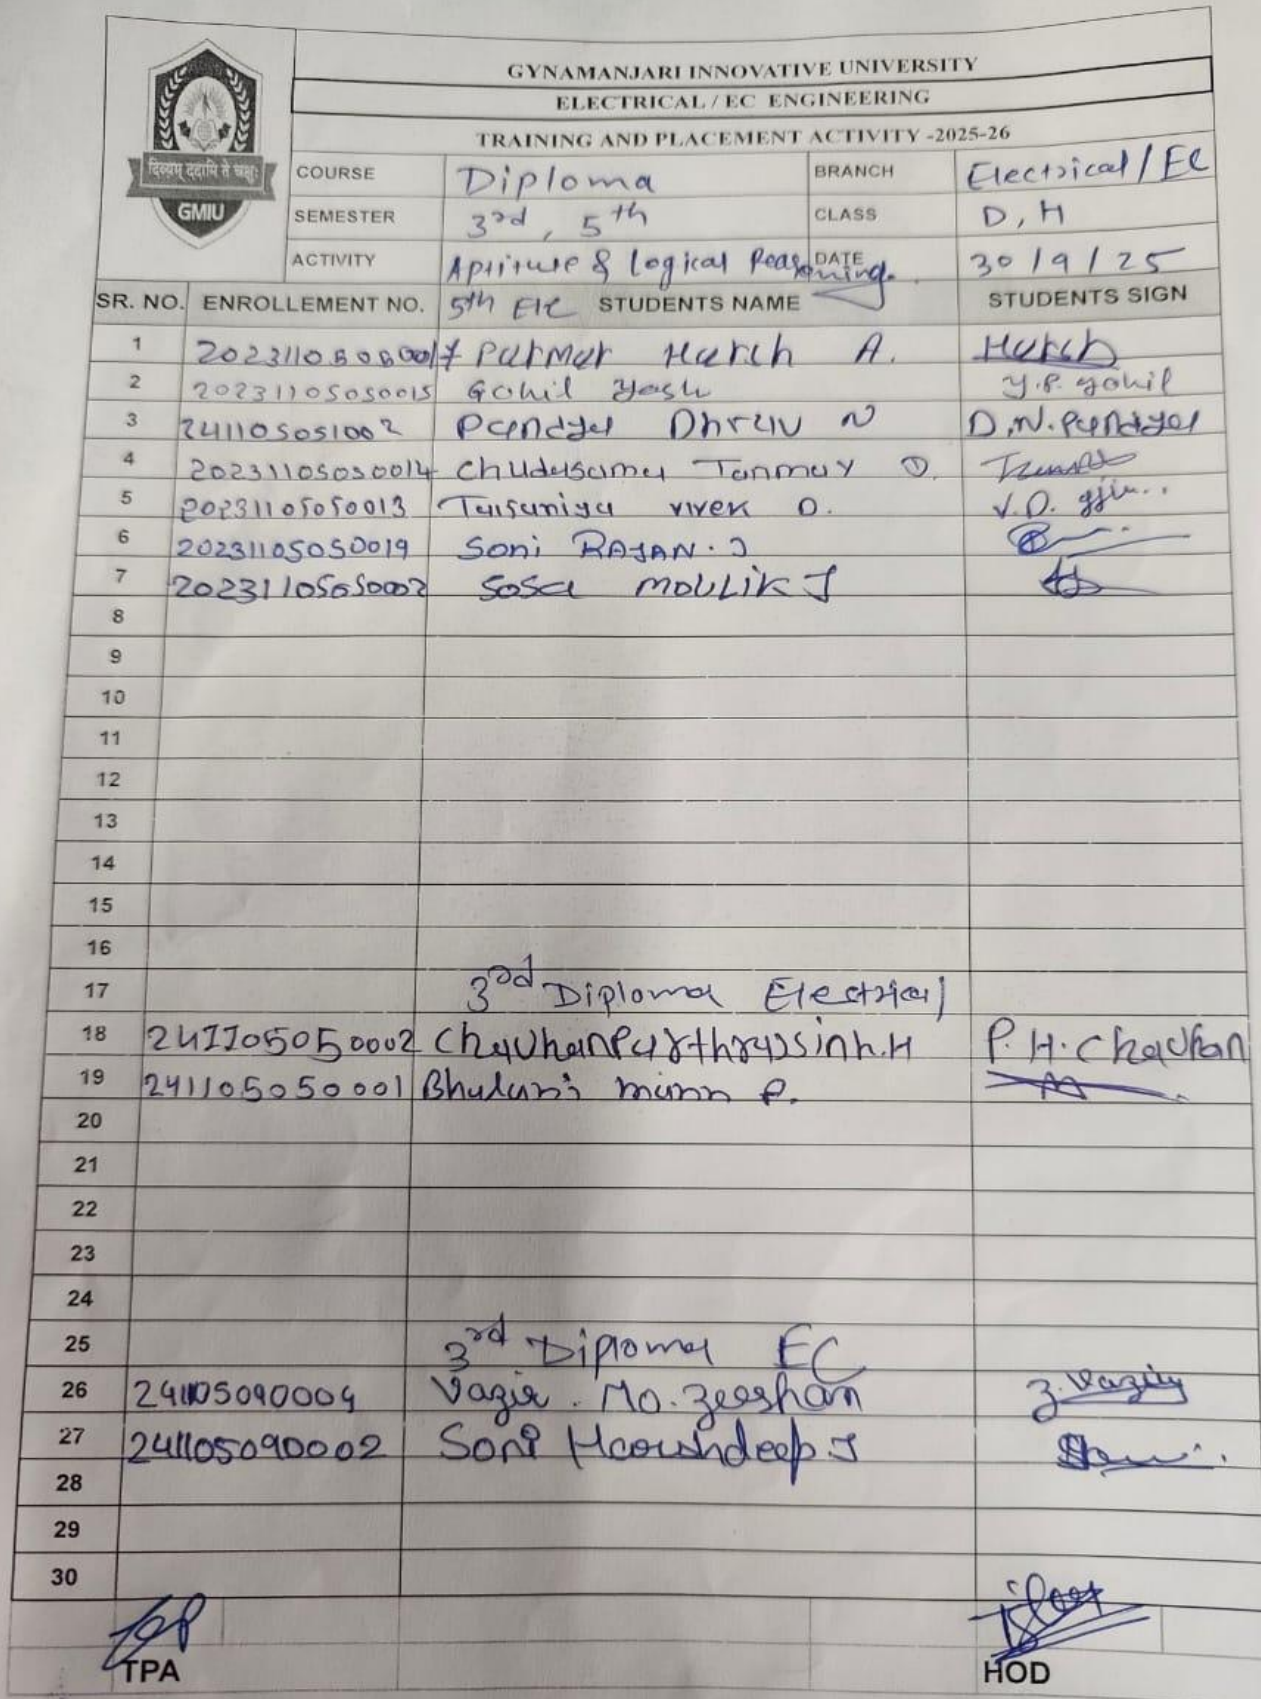 GYNAMANJARI INNOVATIVE UNIVERSITY
ELECTRICAL / EC ENGINEERING
TRAINING AND PLACEMENT ACTIVITY -2025-26
दिव्यम् ददामि ते चक्षुः
GMIU
COURSE Diploma BRANCH Electrical / EC
SEMESTER 3rd, 5th CLASS D, H
ACTIVITY Aptitude & Logical Reasoning. DATE 30/9/25
SR. NO. ENROLLEMENT NO. 5th Ele STUDENTS NAME STUDENTS SIGN
1 20231105050017 Parmar Harsh A. Harsh
2 20231105050015 Gohil Yash y.P. gohil
3 241105051002 Pandya Dhruv N D.N.Pandya
4 20231105050014 Chudasama Tanmay D.
5 20231105050013 Taisuniya vivek D. V.D.
6 20231105050019 Soni RAJAN. J
7 20231105050002 Sosa MOULIK J
8
9
10
11
12
13
14
15
16
17 3rd Diploma Electrical
18 241105050002 Chauhan Parthrajsinh.H P.H.Chauhan
19 241105050001 mann P.
20
21
22
23
24
25 3rd Diploma EC
26 241105090004 Vazir. Mo. Zeeshan Z. Vazir
27 241105090002 Soni Harshdeep.J
28
29
30
TPA HOD